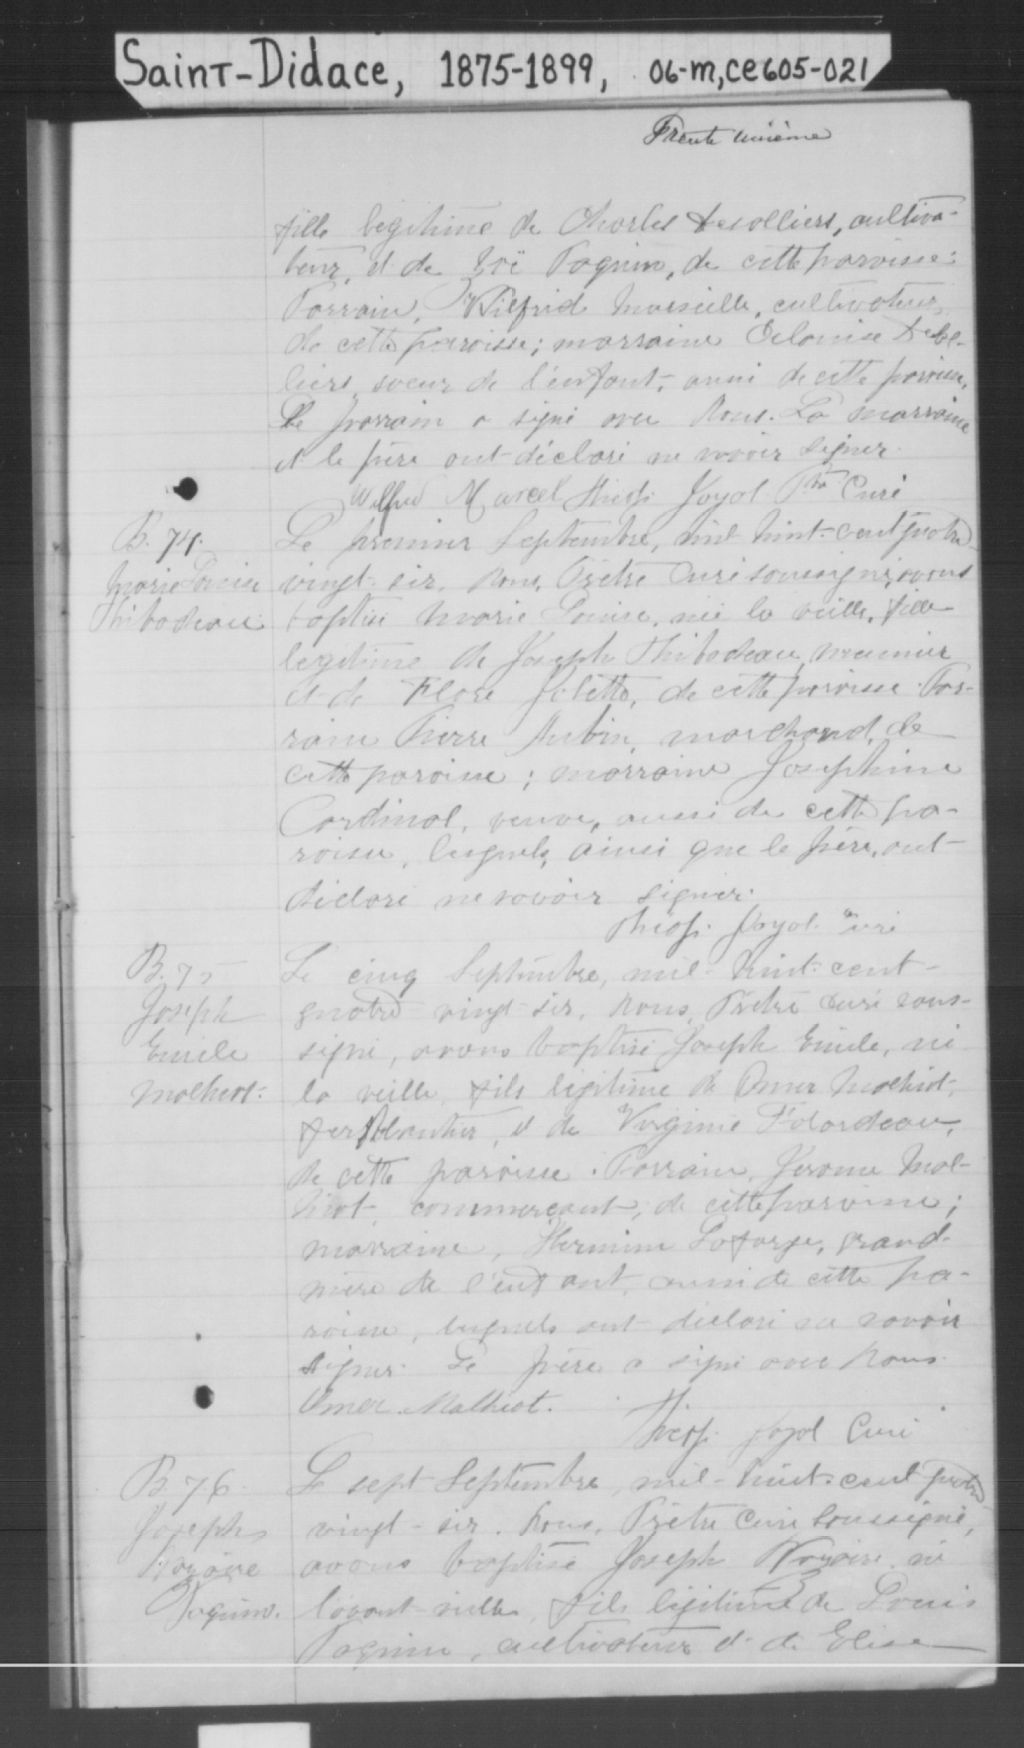 Saint-Didace, 1875-1899, 06-m,ce605-021
Trente unième
fille legitime de Charles Desolliers, cultiva-
teur, et de Zoé Paquin, de cette paroisse:
Parrain, Wilfrid Marseille, cultivateur,
de cette paroisse; marraine
liers soeur de l'enfant, aussi de cette paroisse.
Le parrain a signé avec Nous. La marraine
et le père ont déclaré ne savoir signer.
Wilfrid Marcel Théop. Joyal Ptre Curé
B. 74.
Marie Louise
Thibodeau
Le premier Septembre, mil huit-cent quatre
vingt-six, Nous, Prêtre Curé soussigné, avons
baptisé Marie Louise, née la veille, fille
legitime de Joseph Thibodeau, meunier
et de Flore Joliette, de cette paroisse. Par-
rain Pierre Aubin, marchand, de
cette paroisse; marraine Josephine
Cardinal, veuve, aussi de cette pa-
roisse, lesquels, ainsi que le père, ont
déclaré ne savoir signer.
Théop. Joyal Curé
B. 75
Joseph
Emile
Malhiot.
Le cinq Septembre, mil-huit-cent-
quatre vingt-six, Nous, Prêtre Curé sous-
signé, avons baptisé Joseph Emile, né
la veille, fils légitime de Omer Malhiot,
ferblantier, et de Virginie Falardeau,
de cette paroisse. Parrain, Jerome Mal-
hiot, commerçant, de cette paroisse;
marraine, Hermine Laforge, grand-
mère de l'enfant, aussi de cette pa-
roisse, lesquels ont déclaré ne savoir
signer. Le père a signé avec Nous.
Omer Malhiot.
Théop. Joyal Curé
B. 76.
Joseph
Nazaire
Paquin.
Le sept Septembre, mil-huit-cent quatre
vingt-six. Nous, Prêtre Curé soussigné,
avons baptisé Joseph Nazaire, né
l'avant-veille, fils légitime de Louis
Paquin, cultivateur et de Elise